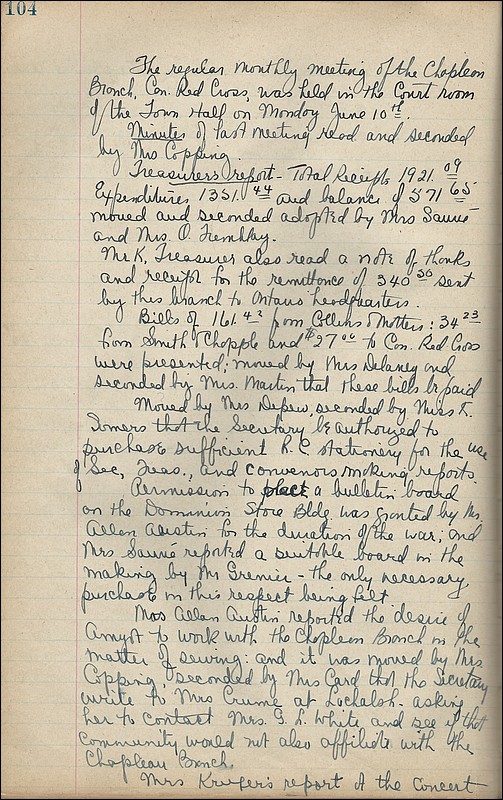 104
The regular monthly meeting of the Chapleau
Branch, Can. Red Cross, was held in the Court room
of the Town Hall on Monday June 10th.
Minutes of last meeting read and seconded
by Mrs Copping.
Treasurer's report - Total Receipts 1921.09
Expenditures 1351.44 and balance of 571 65
moved and seconded adopted by Mrs Sauvé
and Mrs. O. Tremblay.
Mr K, Treasurer also read a note of thanks
and receipt for the remittance of 340 50 sent
by this branch to Ontario headquarters.
Bills of 161.42 from Collins & Motters: 34 23
from Smith & Chapple and $27 00 to Can. Red Cross
were presented; moved by Mrs Delaney and
seconded by Mrs. Martin that these bills be paid
Moved by Mrs Depew, seconded by Miss F.
Somers that the Secretary be authorized to
purchase sufficient R.C. stationery for the use
of Sec, Treas., and convenors making reports.
Permission to place a bulletin board
on the Dominion Store Bldg was granted by Mr.
Allan Austin for the duration of the war; and
Mrs Sauvé reported a suitable board in the
making by Mr Grenier - the only necessary
purchase in this respect being felt
Mrs Allan Austin reported the desire of
Amyot to work with the Chapleau Branch in the
matter of sewing: and it was moved by Mrs
Copping, seconded by Mrs Card that the Secretary
write to Mrs Crume at Lochalsh - asking
her to contact Mrs. G. L. White and see if that
community would not also affiliate with the
Chapleau Branch.
Mrs Kruger's report of the concert